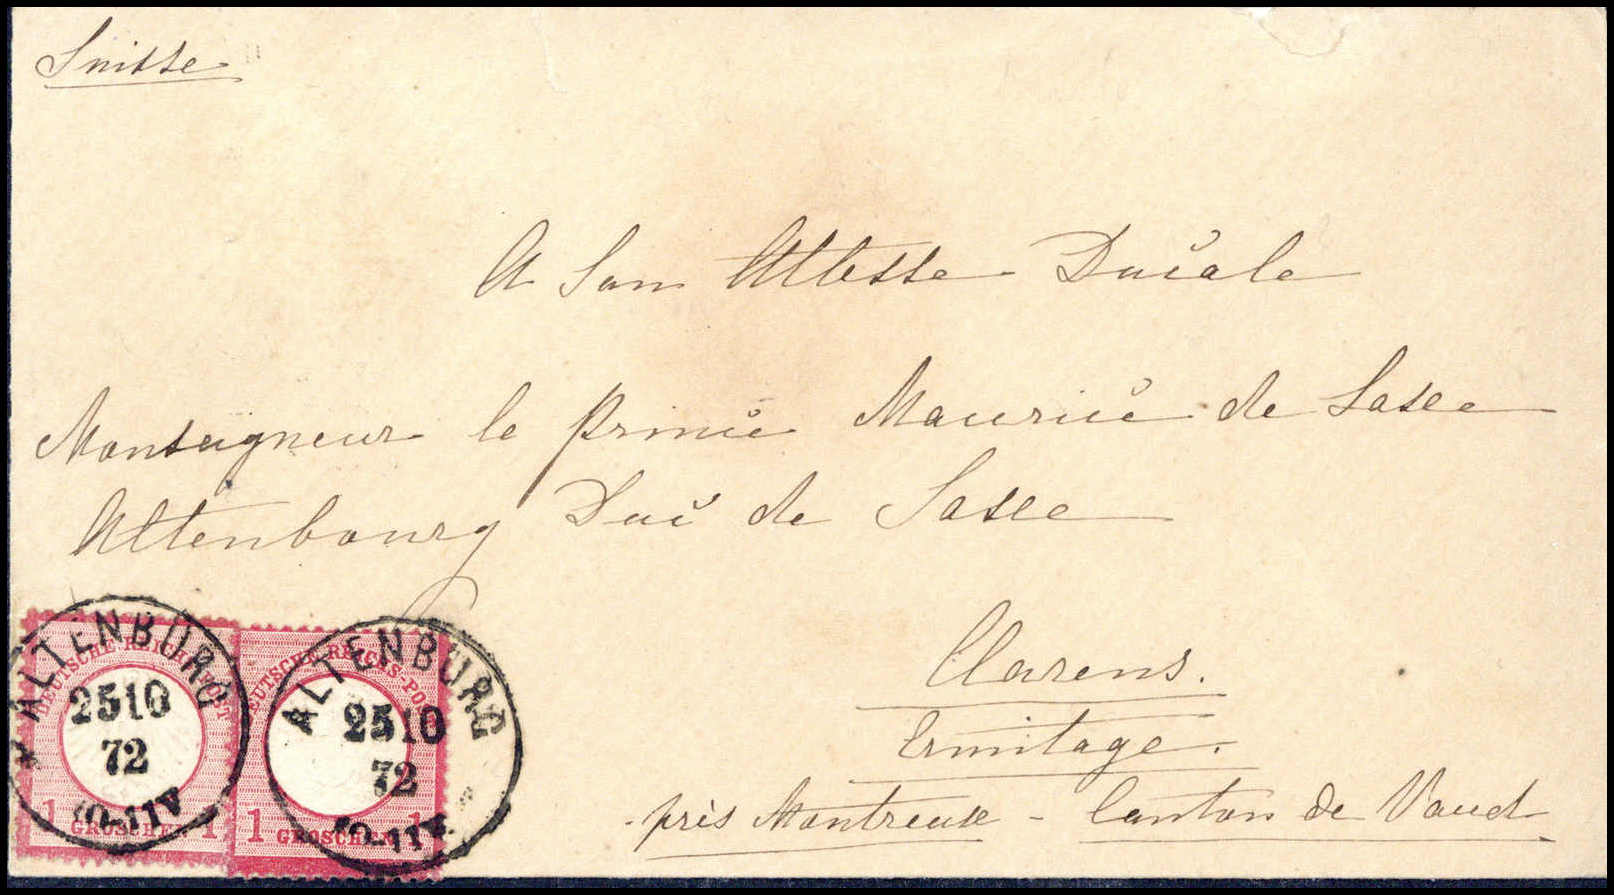 Suisse
A Son Altesse Ducale
Monseigneur le Prince Maurice de Saxe
Altenbourg Duc de Saxe
Clarens.
Ermitage.
près Montreux - Canton de Vaud
ALTENBURG
2510
72
10-11V
DEUTSCHE REICHS-POST
1 GROSCHEN 1
ALTENBURG
2510
72
10-11V
DEUTSCHE REICHS-POST
1 GROSCHEN 1